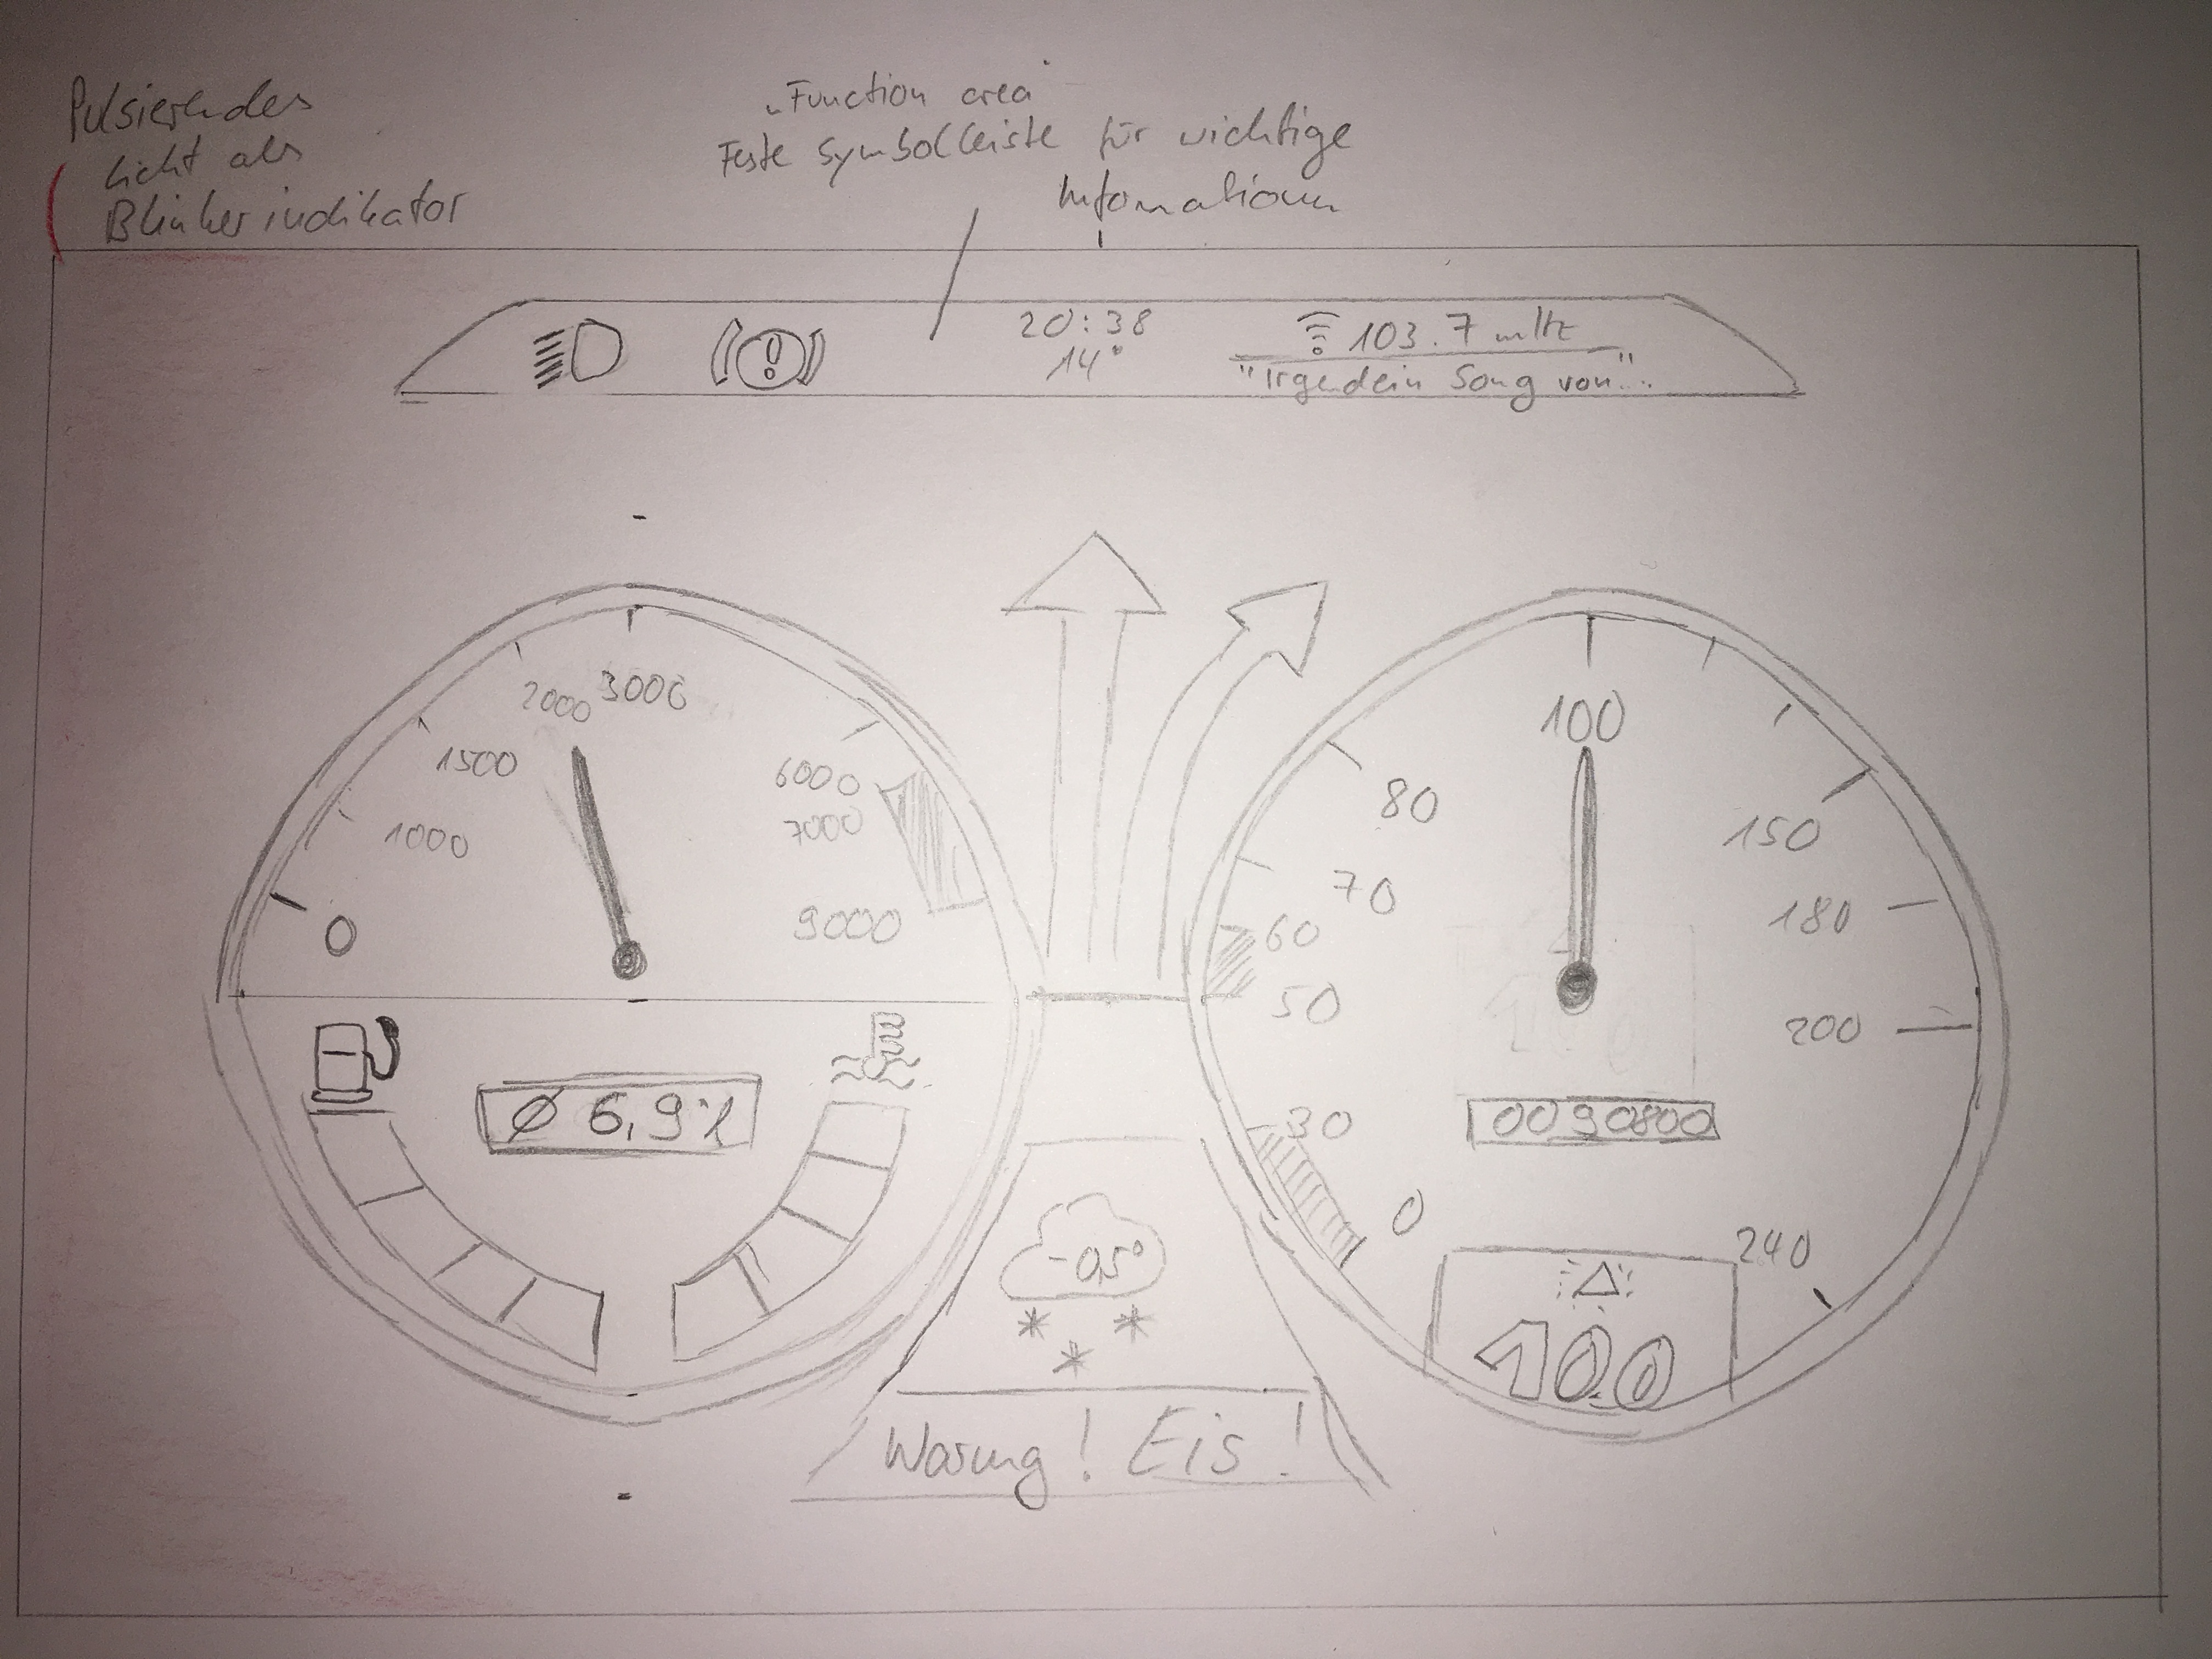 Pulsierendes
Licht als
Blinkerindikator
"Function area
Feste Symbolleiste für wichtige
Informationen
20:38
14°
103.7 mHz
"Irgendein Song von..."
0
1000
1500
2000
3000
6000
7000
9000
Ø 6,9%
-0,5°
Warung! Eis!
0
30
50
60
70
80
100
150
180
200
240
0090800
100